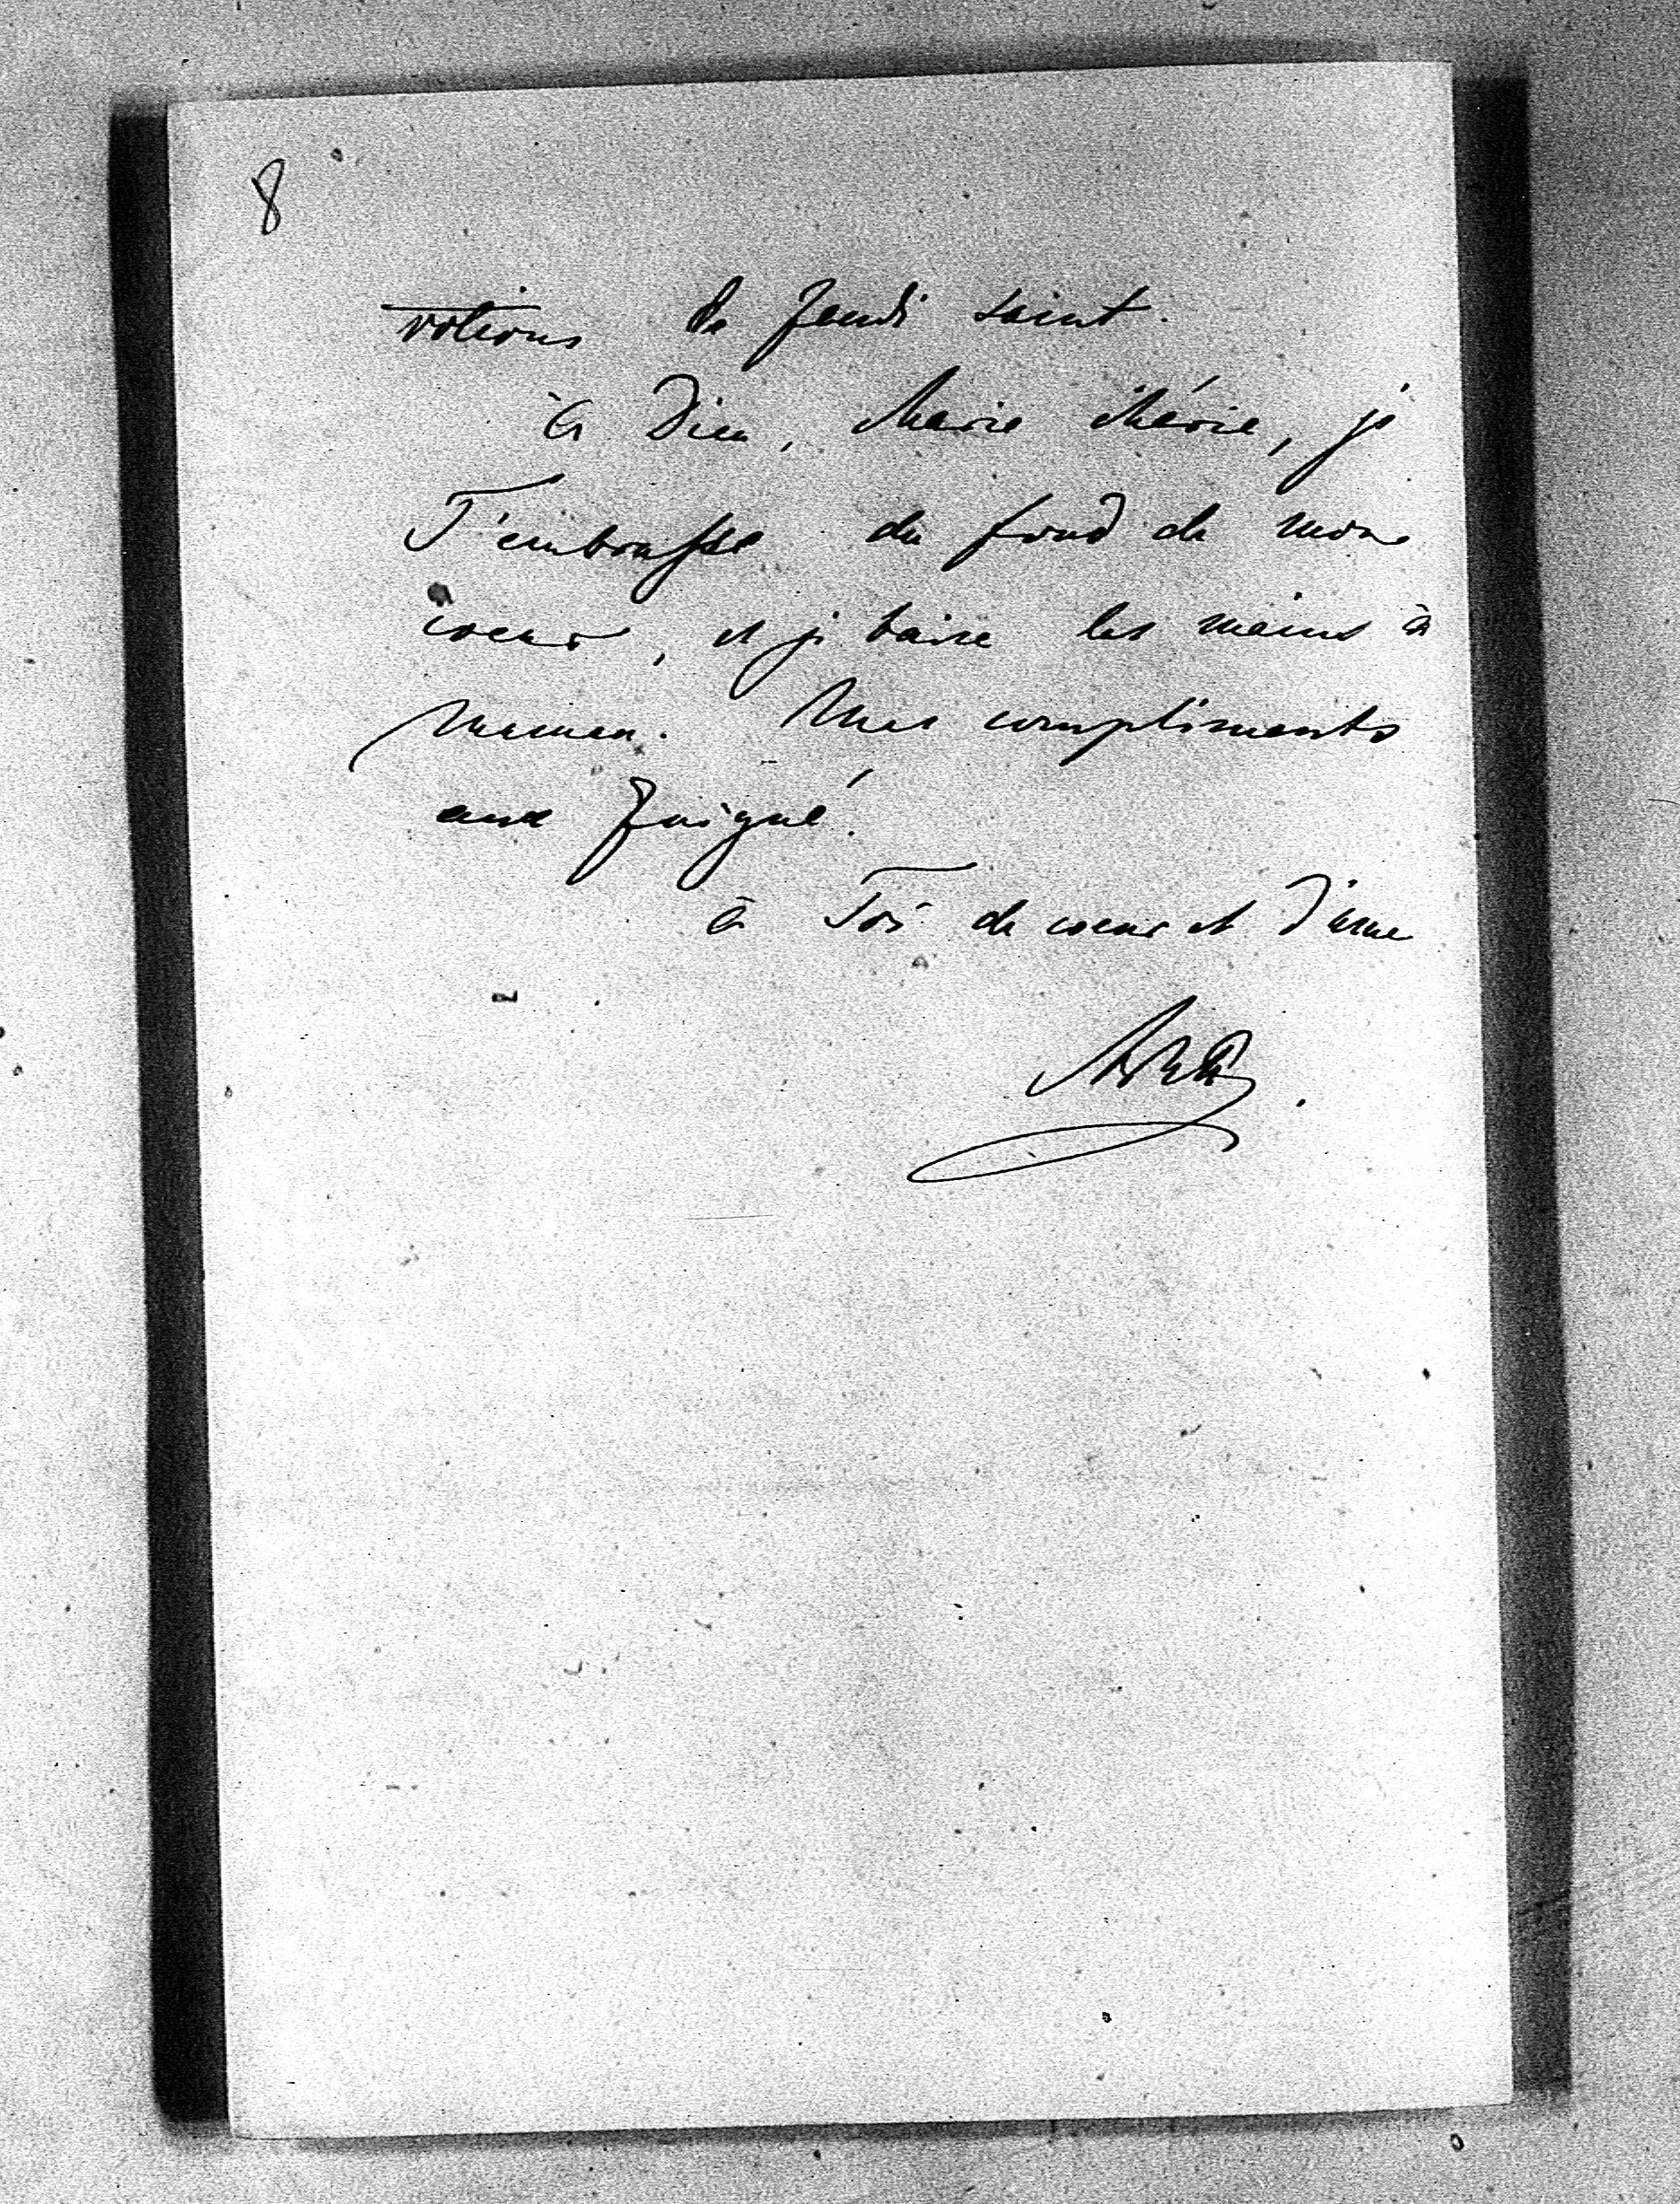 8
votions de Jeudi saint.
à Dieu, Marie chérie, je
T'embrasse du fond de mon
coeur, et je baise les mains à
Maman. Mes compliments
aux
à Toi de coeur et d'âme